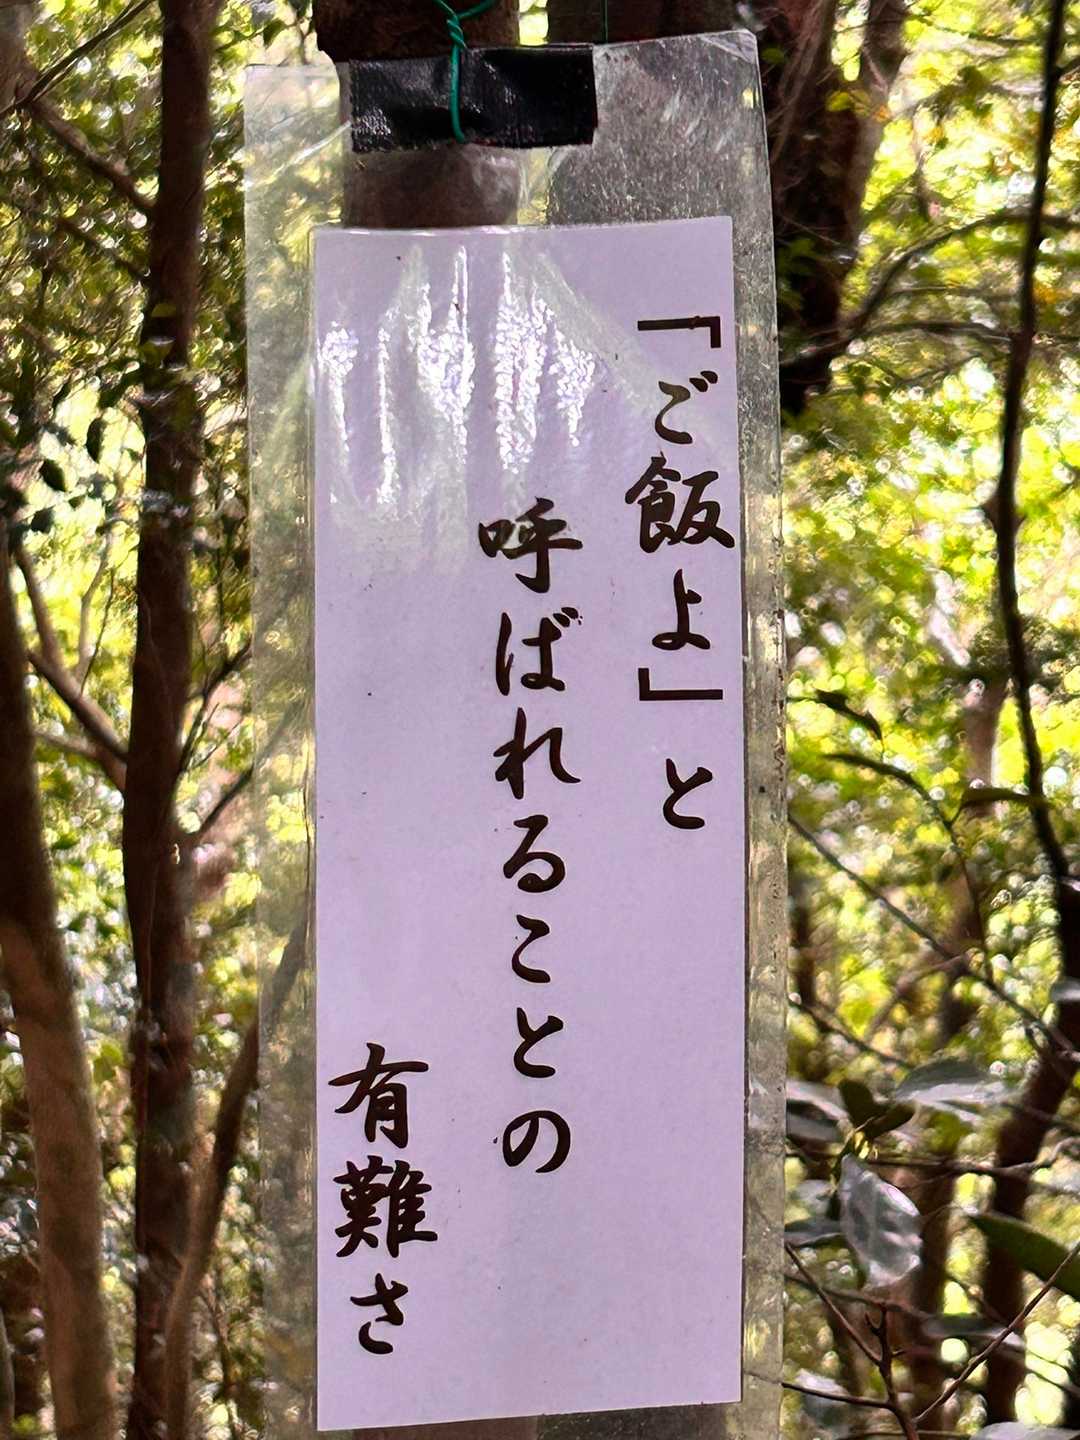 「ご飯よ」と
呼ばれることの
有難さ